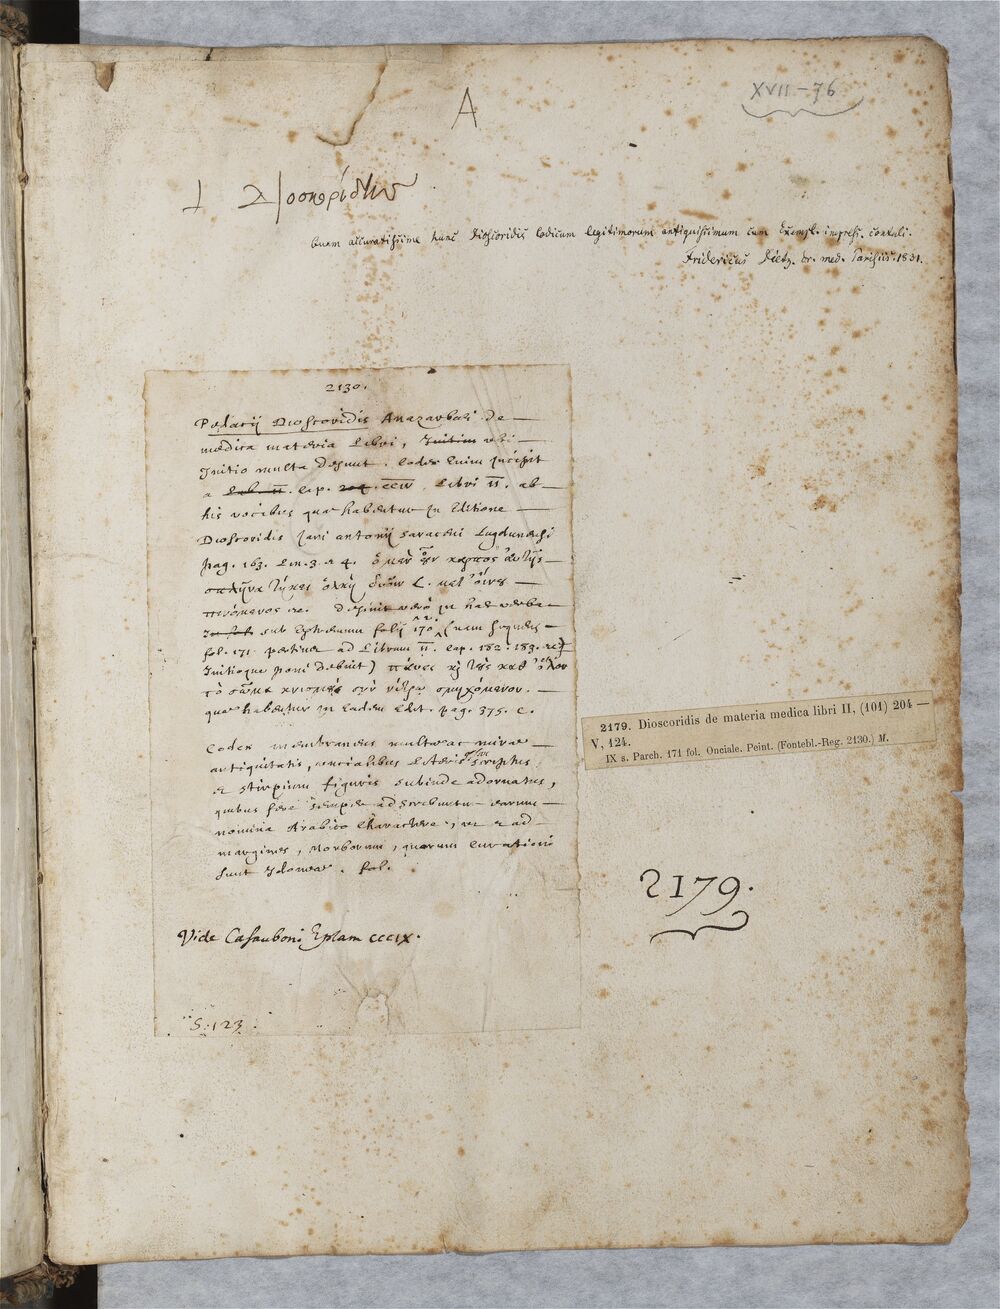 A
XVII - 76
Διοσκορίδης
Quam accuratissime hunc Dioscoridis codicum legitimorum antiquissimum cum Exempl. impress. contuli.
Fridericus Dietz. dr. med. Parisiis. 1831.
2130.
Pedacij Dioscoridis Anazarbæi de
medica materia Libri, Initium
Initio multa desunt. Codex enim incipit
a Lib. II. cap. 204. CCIV. Libri II. ab
his vocibus quæ habentur in Editione
Dioscoridis Jani Antonij Saraceni Lugdunensi
pag. 163. Lin. 3. et 4. ὁ μὲν καρπὸς αὐτῆς
σπλῆνα τήκει ὁλκὴ μετ' οἴνου
πινόμενος &c. Desinit vero in hæc verba
sub Ephemeru folij 170 (nam sequens
fol. 171 pertinet ad Librum II. cap. 182. 183.
Initioque poni debuit) καθ' ὅλον
τὸ σῶμα κνισμοὺς σὺν σμηχόμενον.
quæ habentur in eadem Edit. pag. 375. C.
Codex membraneus multæ ac miræ
antiquitatis, uncialibus Literis scriptus
et stirpium figuris subinde adornatus,
quibus fere semper adscribuntur earum
nomina Arabico Charactere, ut et ad
margines, Morborum, quorum curationi
sunt Idoneæ. fol.
Vide Casauboni Eplam CCCIX.
S. 123.
2179. Dioscoridis de materia medica libri II, (101) 204 —
V, 124.
IX s. Parch. 171 fol. Onciale. Peint. (Fontebl.-Reg. 2130.) M.
2179.